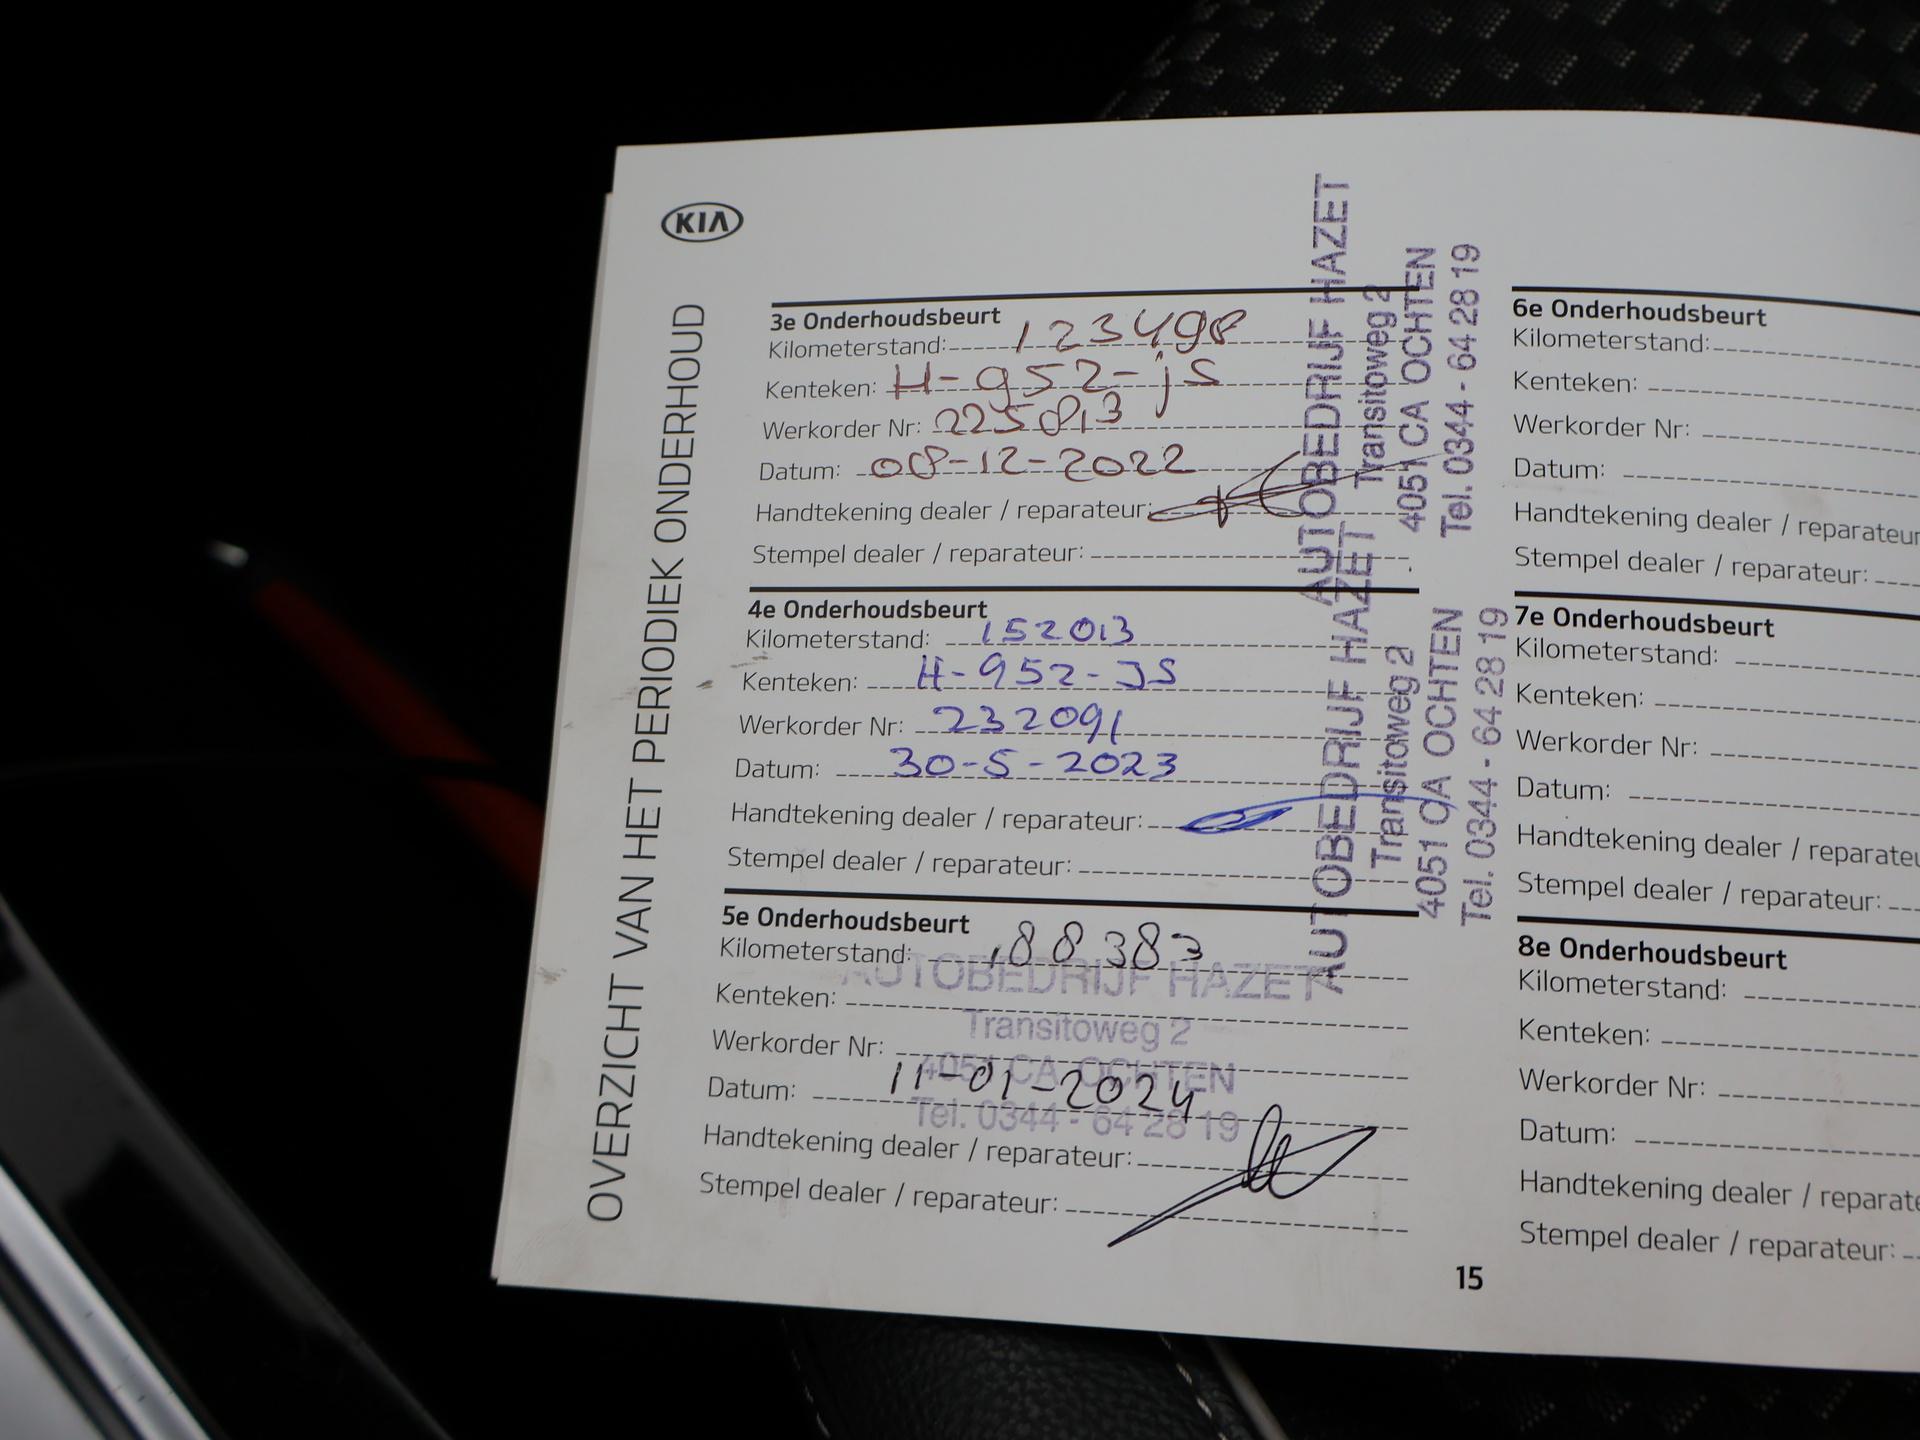 KIA
OVERZICHT VAN HET PERIODIEK ONDERHOUD
3e Onderhoudsbeurt
Kilometerstand: 123498
Kenteken: H-952-js
Werkorder Nr: 225813
Datum: 08-12-2022
Handtekening dealer / reparateur:
Stempel dealer / reparateur:
AUTOBEDRIJF HAZET
Transitoweg 2
4051 CA OCHTEN
Tel. 0344 - 64 28 19
4e Onderhoudsbeurt
Kilometerstand: 152013
Kenteken: H-952-JS
Werkorder Nr: 232091
Datum: 30-5-2023
Handtekening dealer / reparateur:
Stempel dealer / reparateur:
AUTOBEDRIJF HAZET
Transitoweg 2
4051 CA OCHTEN
Tel. 0344 - 64 28 19
5e Onderhoudsbeurt
Kilometerstand: 188383
Kenteken:
Werkorder Nr:
Datum: 11-01-2024
Handtekening dealer / reparateur:
Stempel dealer / reparateur:
AUTOBEDRIJF HAZET
Transitoweg 2
4051 CA OCHTEN
Tel. 0344 - 64 28 19
6e Onderhoudsbeurt
Kilometerstand:
Kenteken:
Werkorder Nr:
Datum:
Handtekening dealer / reparateur
Stempel dealer / reparateur:
7e Onderhoudsbeurt
Kilometerstand:
Kenteken:
Werkorder Nr:
Datum:
Handtekening dealer / reparateu
Stempel dealer / reparateur:
8e Onderhoudsbeurt
Kilometerstand:
Kenteken:
Werkorder Nr:
Datum:
Handtekening dealer / reparate
Stempel dealer / reparateur:
15